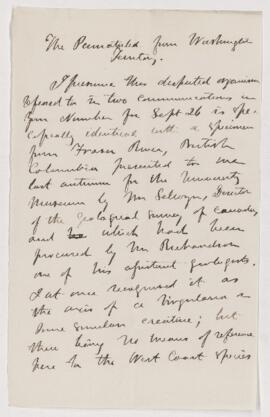 The Pennatulid from Washington
Territory.
I presume this disputed organism
referred to in two communications in
your Number for Sept 26 is spe-
cifically identical with a specimen
from Fraser River, British
Columbia presented to me
last autumn for the University
Museum by Mr Selwyn, Director
of the Geological Survey of Canada,
and which had been
procured by Mr Richardson
one of his assistant geologists.
I at once recognised it as
the axis of a Virgularia or
some similar creature; but
there being no means of reference
here to the West Coast species